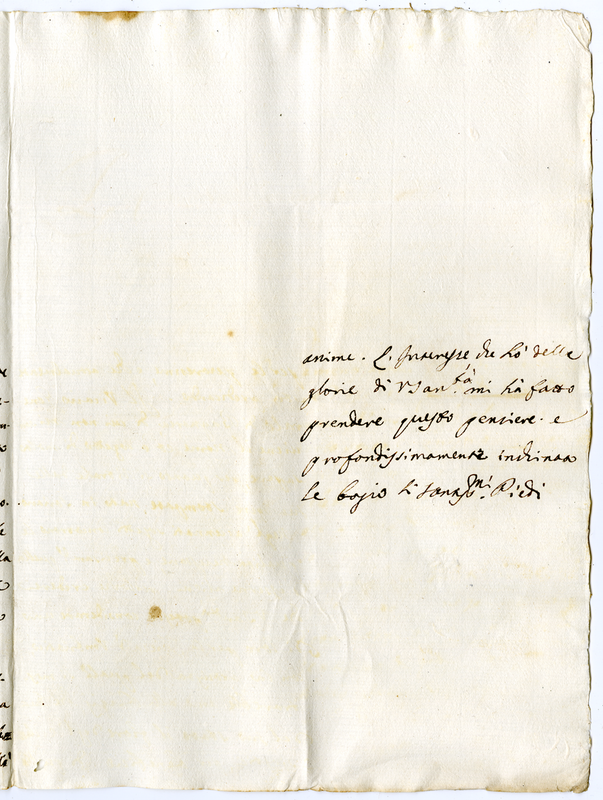 anime. L'Interesse che hò delle
glorie di V San.tà mi hà fatto
prendere questo pensiere. e
profondissimamente inchinata
le bagio li santiss.mi Piedi